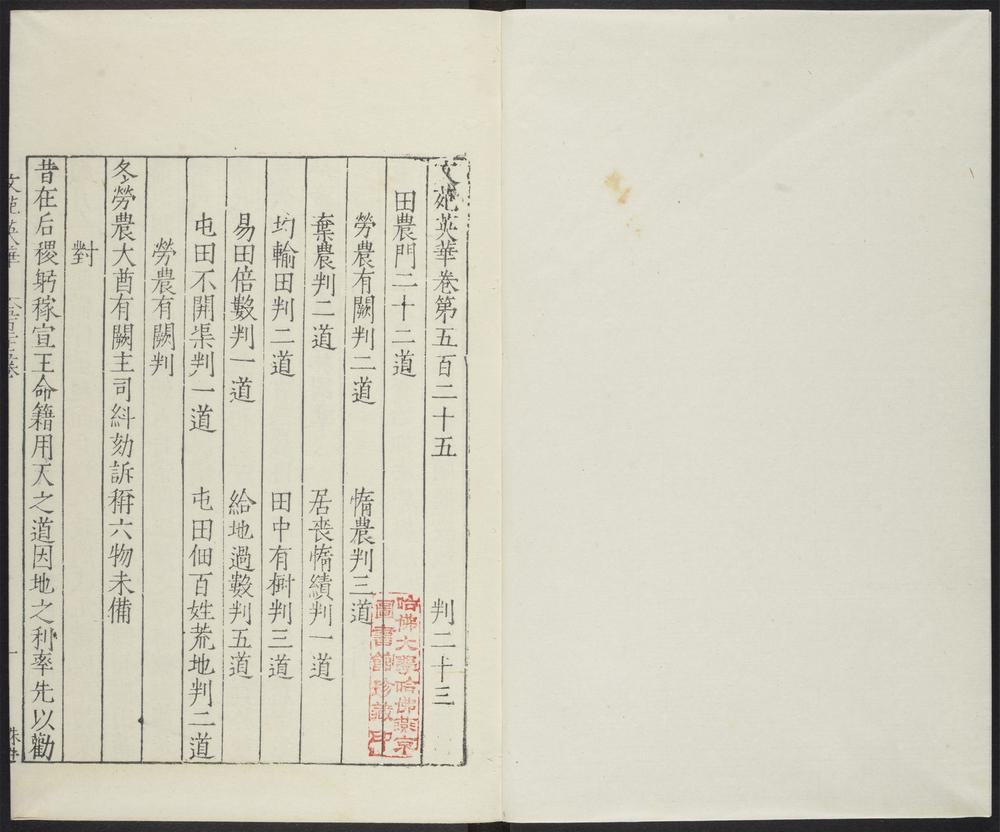 文苑英華卷第五百二十五 判二十三
田農門二十二道
勞農有闕判二道 惰農判三道
棄農判二道 居喪惰績判一道
均輸田判二道 田中有樹判三道
易田倍數判一道 給地過數判五道
屯田不開渠判一道 屯田佃百姓荒地判二道
勞農有闕判
冬勞農大酋有闕主司糾劾訴稱六物未備
對
昔在后稷躬稼宣王命籍用天之道因地之利率先以勸
文苑英華
一
哈佛大學哈佛燕京
圖書館珍藏印